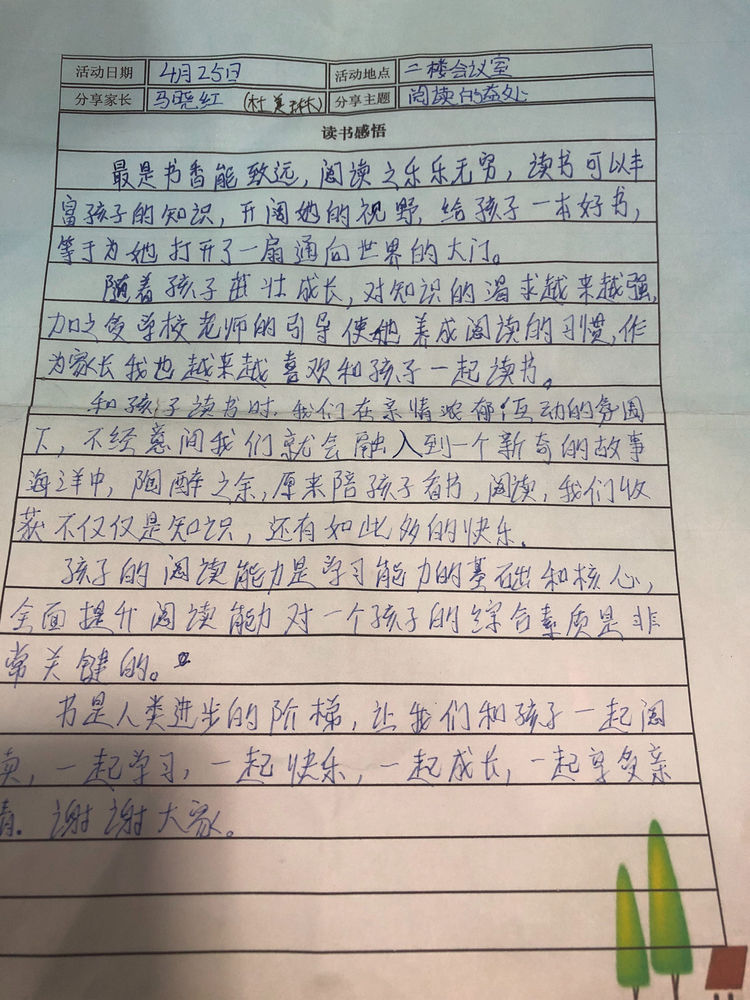 活动日期 4月25日 活动地点 二楼会议室
分享家长 马晓红 (杜美琳) 分享主题 阅读的益处
读书感悟
最是书香能致远,阅读之乐乐无穷,读书可以丰
富孩子的知识,开阔她的视野,给孩子一本好书,
等于为她打开了一扇通向世界的大门。
随着孩子茁壮成长,对知识的渴求越来越强,
加之受学校老师的引导使她养成阅读的习惯,作
为家长我也越来越喜欢和孩子一起读书。
和孩子读书时,我们在亲情浓郁互动的氛围
下,不经意间我们就会融入到一个新奇的故事
海洋中,陶醉之余,原来陪孩子看书,阅读,我们收
获不仅仅是知识,还有如此多的快乐.
孩子的阅读能力是学习能力的基础和核心,
全面提升阅读能力对一个孩子的综合素质是非
常关键的。
书是人类进步的阶梯,让我们和孩子一起阅
读,一起学习,一起快乐,一起成长,一起享受亲
情.谢谢大家。